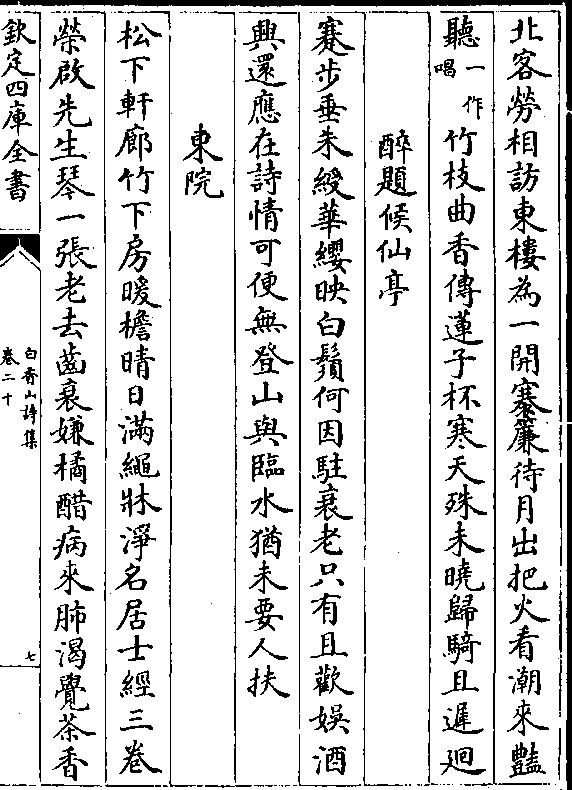 北客勞相訪東樓為一開褰簾待月出把火看潮來豔
聽一作唱竹枝曲香傳蓮子杯寒天殊未曉歸騎且遲廻
醉題候仙亭
蹇步垂朱綬華纓映白鬚何因駐衰老只有且歡娛酒
興還應在詩情可便無登山與臨水猶未要人扶
東院
松下軒廊竹下房暖檐晴日滿繩牀淨名居士經三卷
榮啟先生琴一張老去齒衰嫌橘醋病來肺渴覺茶香
欽定四庫全書
白香山詩集
卷二十
七